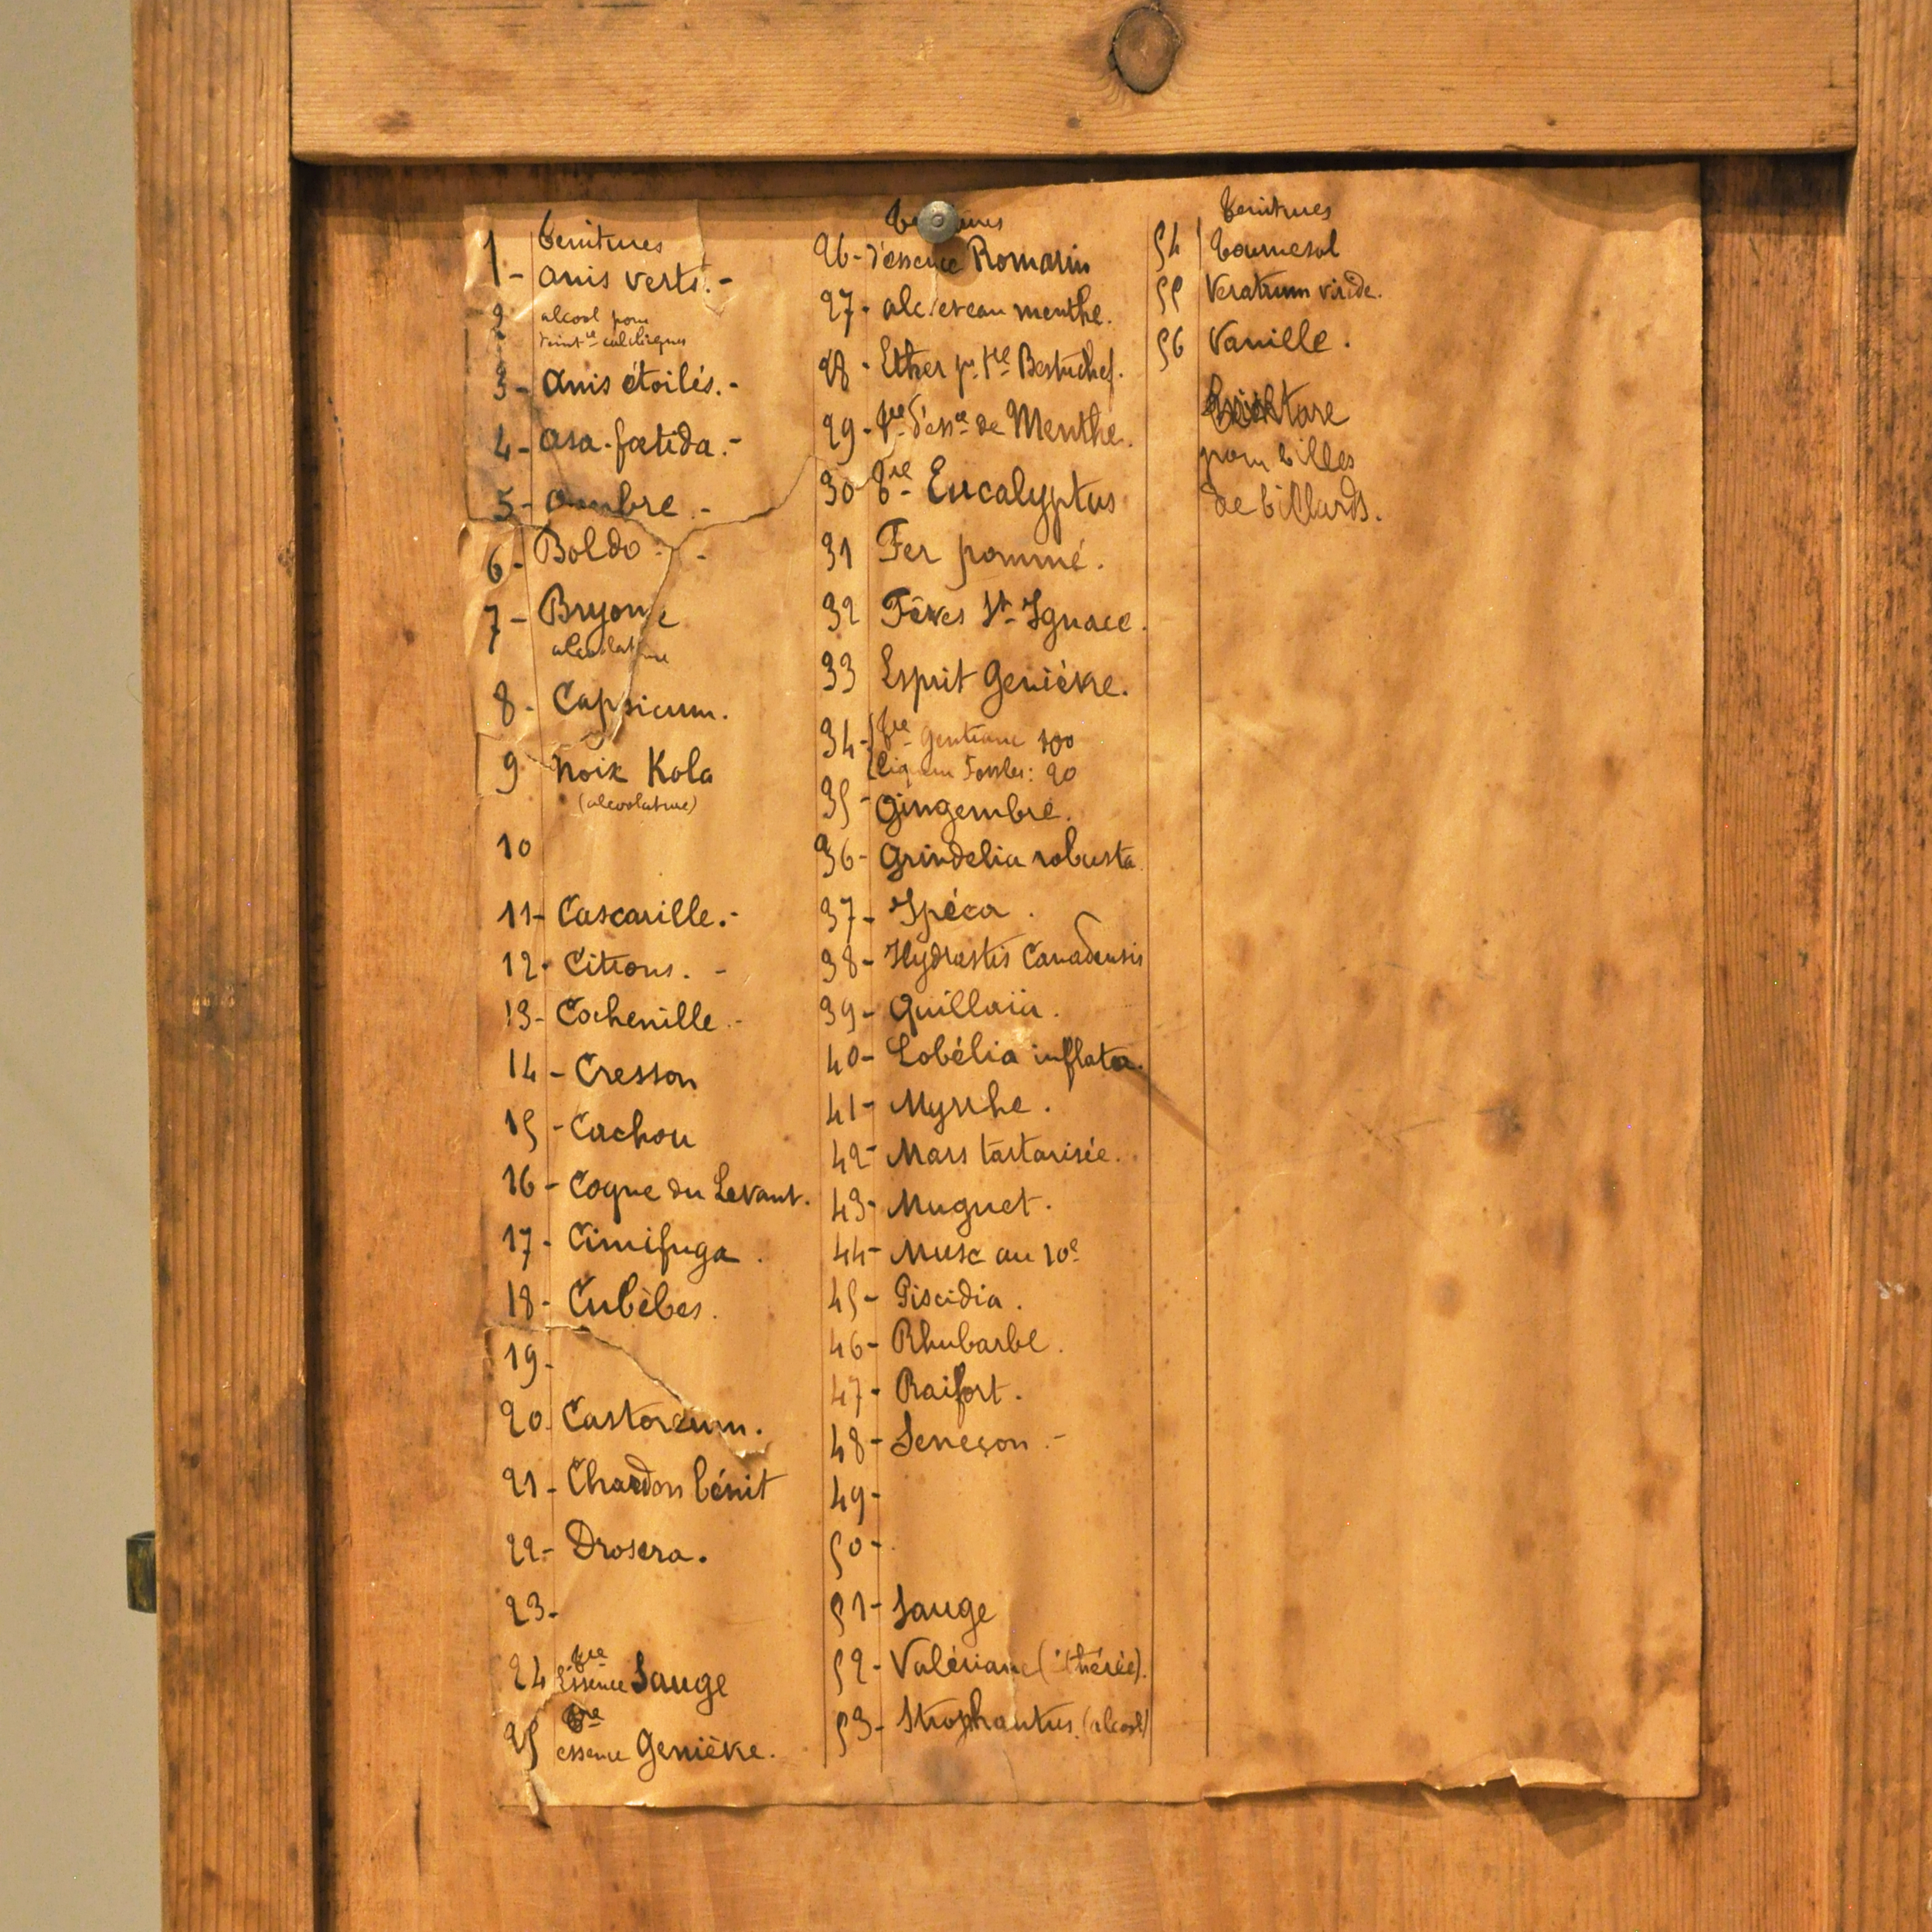 Teintures
1 - Anis verts. -
2 alcool pour
teint^re
3 - Anis étoilés. -
4 - Asa-fœtida. -
5 - Ambre. -
6 - Boldo - -
7 - Bryone
alcoolature
8 - Capsicum.
9 Noix Kola
(alcoolature)
10
11 - Cascarille. -
12 - Citrons. -
13 - Cochenille. -
14 - Cresson
15 - Cachou
16 - Coque du Levant.
17 - Cimifuga.
18 - Cubèbes.
19 -
20 Castoreum.
21 - Chardon bénit
22 - Drosera.
23 -
24 T^re Essence Sauge
25 T^re essence Genièvre.
Teintures
26 - d'essence Romarin
27 - alc. et eau menthe.
28 - Ether p. t^re Bestuchef.
29 - T^re d'ess^ce de Menthe.
30 T^re Eucalyptus
31 Fer pommé.
32 Fèves S^t Ignace.
33 Esprit Genièvre.
34 - T^re Gentiane 100
Fowler: 20
35 - Gingembre.
36 - Grindelia robusta
37 - Ipéca.
38 - Hydrastis Canadensis
39 - Quillaïa.
40 - Lobélia inflata.
41 - Myrrhe.
42 - Mars tartarisée.
43 - Muguet.
44 - Musc au 10^e
45 - Piscidia.
46 - Rhubarbe.
47 - Raifort.
48 - Seneçon. -
49 -
50 -
51 - Sauge
52 - Valériane (éthérée).
53 - Strophantus. (alcool)
Teintures
54 Tournesol
55 Veratrum viride.
56 Vanille.
pour billes
de billards.